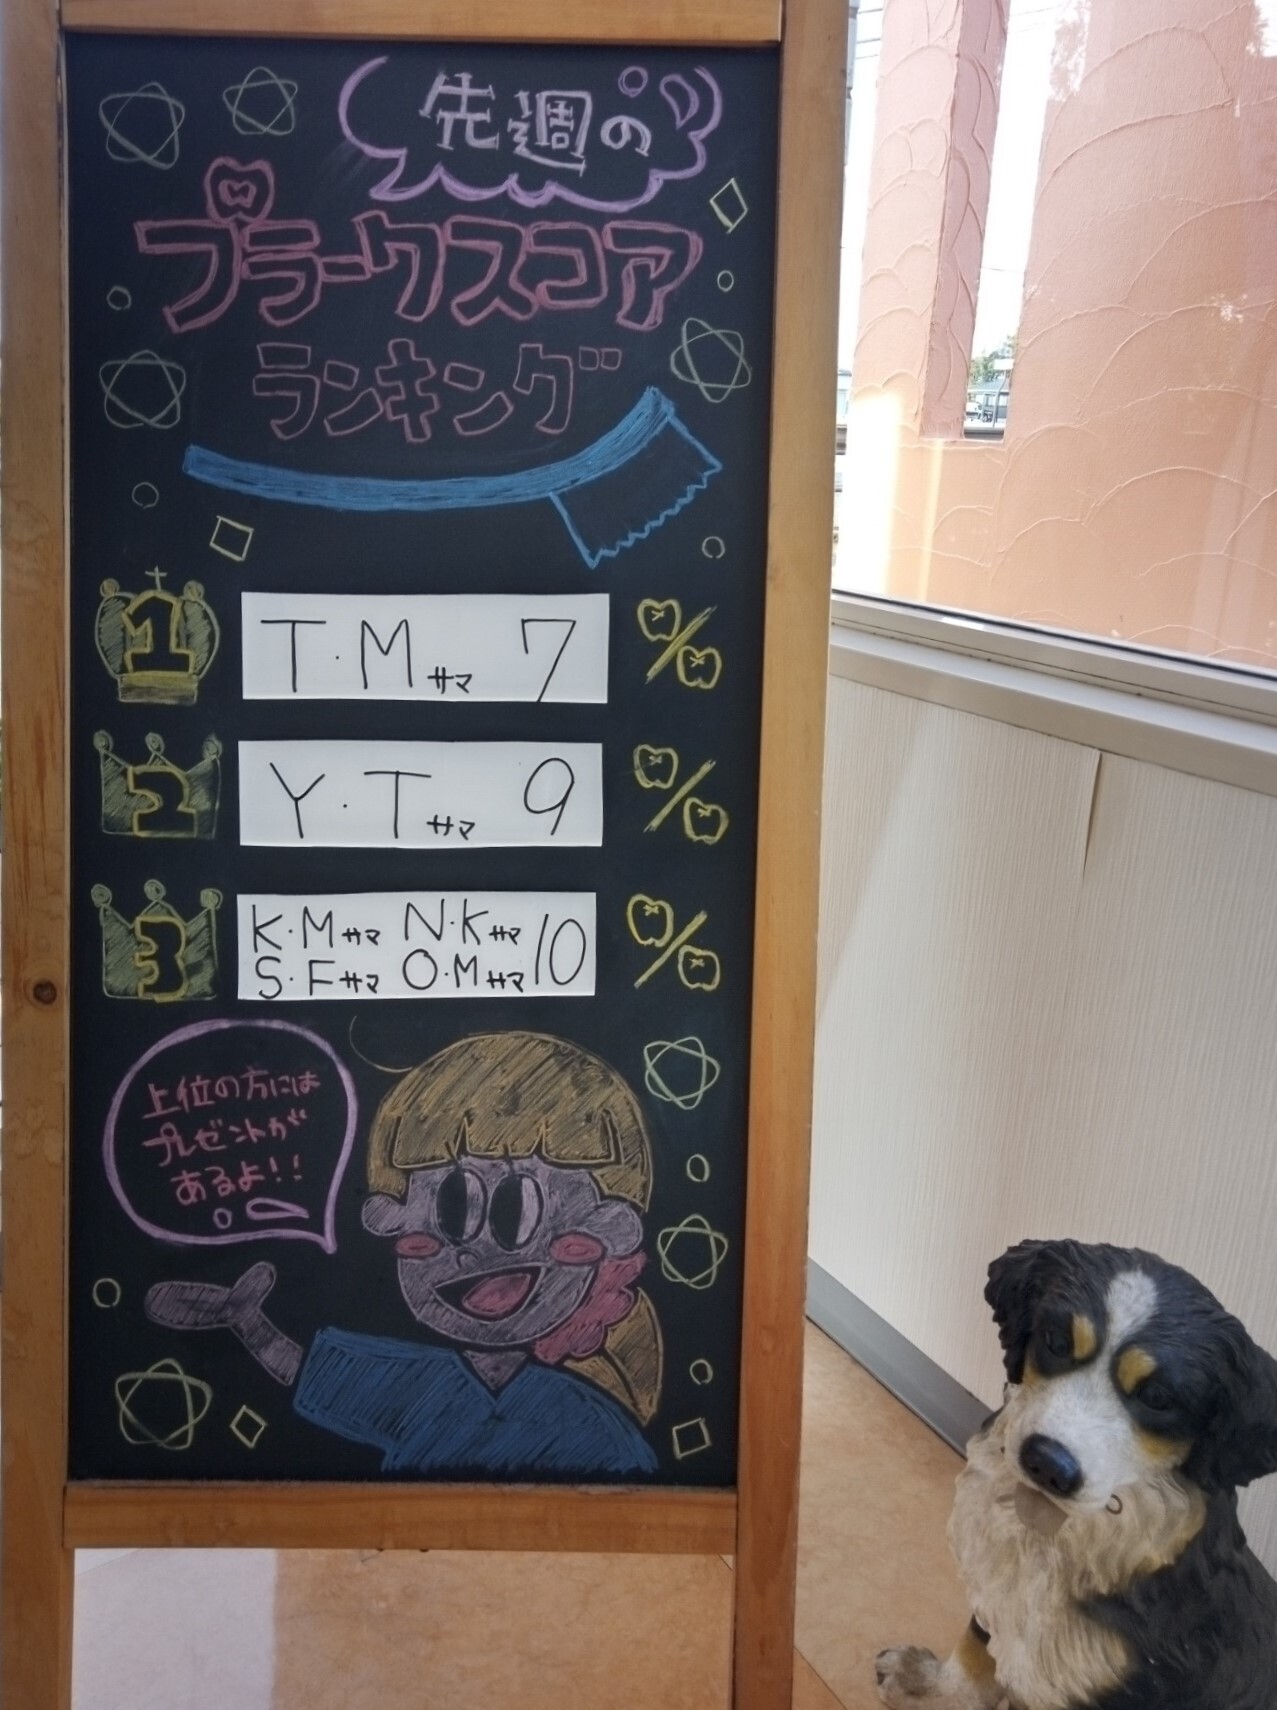 先週の
プラークスコア
ランキング
1 T・Mサマ 7 %
2 Y・Tサマ 9 %
3 K・Mサマ N・Kサマ
S・Fサマ O・Mサマ 10 %
上位の方には
プレゼントが
あるよ!!